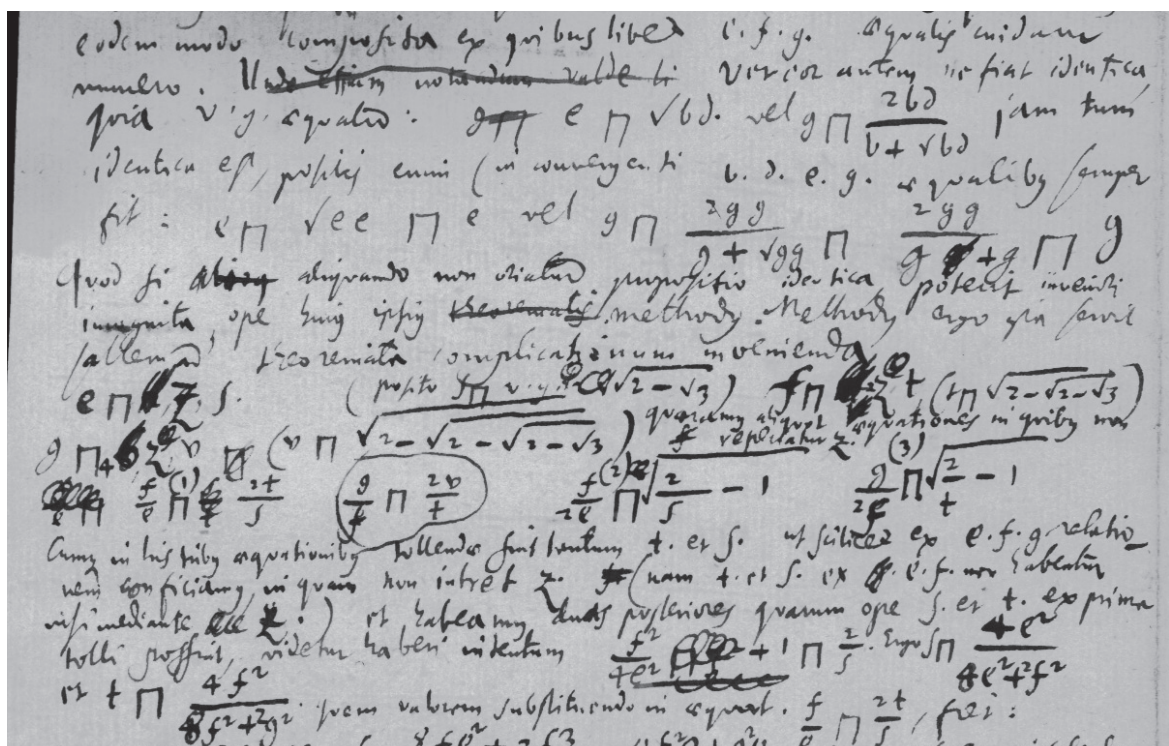 eodem modo composita ex quibuslibet e. f. g. æqualis cuidam
numero. Vereor autem ne fiat identica
quia v. g. æquatio: e ⊓ √bd. vel g ⊓ 2bd / b + √bd jam tum
identica est, positis enim (in convergenti b. d. e. g. æqualibus semper
fit: e ⊓ √ee ⊓ e vel g ⊓ 2gg / g + √gg ⊓ 2gg / g + g ⊓ g
Quod si aliquando non oriatur propositio identica, poterit inveniri
incognita, ope hujus ipsius methodi. Methodus ergo ista servit
saltem ad theoremata complicatissimum invenienda
e ⊓ z, s. (posito s ⊓ v. g. √2 − √3) f ⊓ z t (t ⊓ √2 − √2 − √3)
g ⊓ 4 z, v (v ⊓ √2 − √2 − √2 − √3) quæramus aliquot æquationes in quibus non
reperiatur z.
f / e (1) ⊓ 2t / s g / f ⊓ 2v / t f / 2e (2) ⊓ √2 / s − 1 g / 2f (3) ⊓ √2 / t − 1
Cumque in his tribus æquationibus tollendæ sint tantum t. et s. ut scilicet ex e. f. g. relatio
nem conficiamus, in quam non intret z. (nam t. et s. ex e. f. non habentur
nisi mediante z.) et habeamus duas posteriores quarum ope s. et t. ex prima
tolli possint, videtur haberi intentum f² / 4e² + 1 ⊓ 2 / s. Ergo s ⊓ 8e² / 4e² + f²
et t ⊓ 8f² / 4f² + g² quem valorem substituendo in æquat. f / e ⊓ 2t / s, fiet: